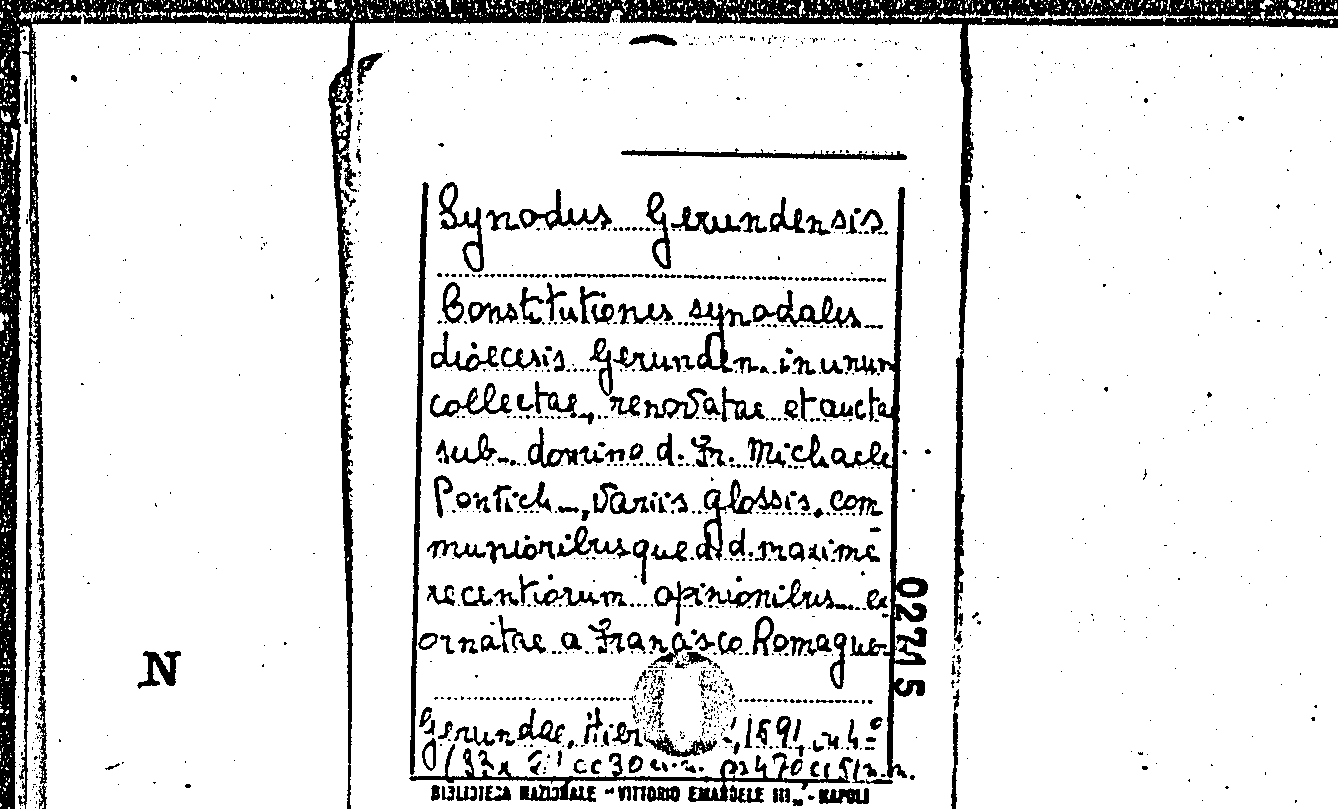 Synodus Gerundensis
Constitutiones synodales
dioecesis Gerunden. in unum
collectae, renovatae et aucta
sub domino d. Fr. Michaele
Pontich, variis glossis, com
munioribusque d.d. maxime
recentiorum opinionibus ex
ornatae a Francisco Romaguer
Gerundae, Hier 1691, in 4º
cc 30 n.n. pp 470 cc 51 n.n.
BIBLIOTECA NAZIONALE "VITTORIO EMANUELE III" - NAPOLI
02715
N